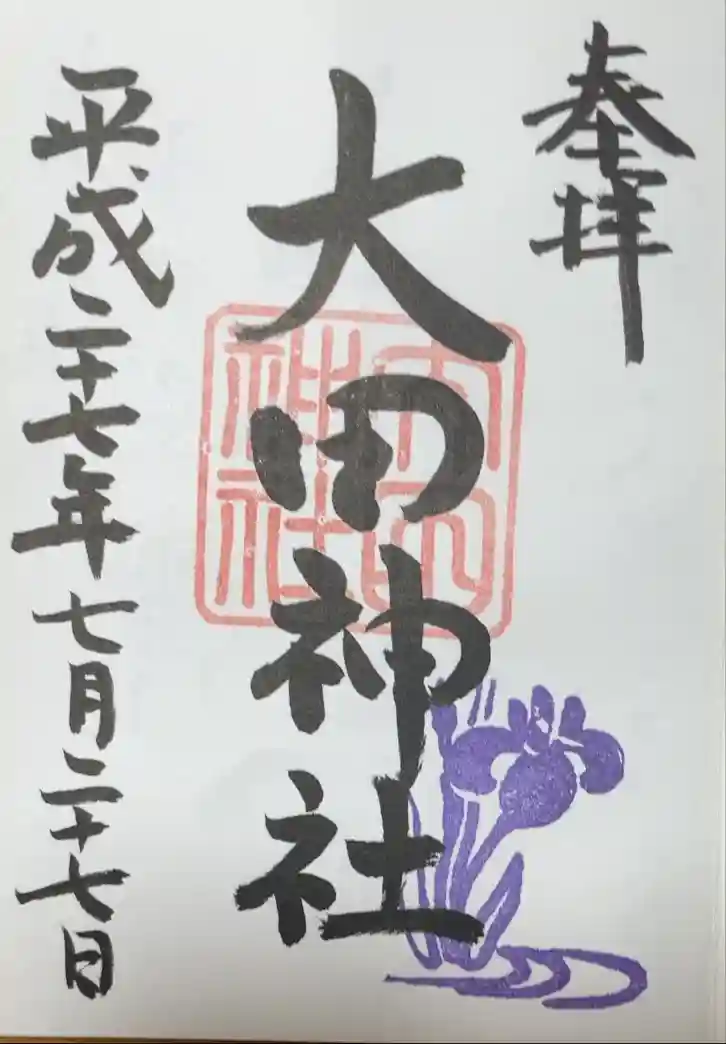 奉拝
大田神社
平成二十七年七月二十七日
大田神社